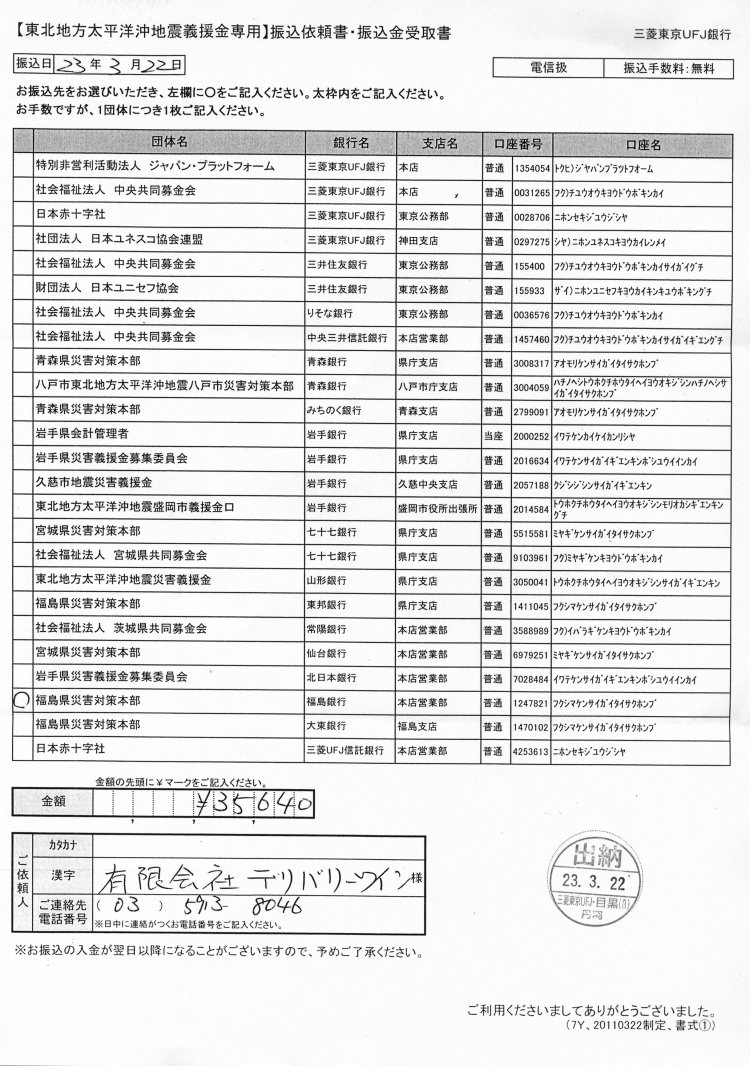 【東北地方太平洋沖地震義援金専用】振込依頼書・振込金受取書 三菱東京UFJ銀行
振込日 23 年 3 月 22 日
電信扱 振込手数料:無料
お振込先をお選びいただき、左欄に○をご記入ください。太枠内をご記入ください。
お手数ですが、1団体につき1枚ご記入ください。
団体名 銀行名 支店名 口座番号 口座名
特別非営利活動法人 ジャパン・プラットフォーム 三菱東京UFJ銀行 本店 普通 1354054 トクヒ)ジヤパンプラツトフオーム
社会福祉法人 中央共同募金会 三菱東京UFJ銀行 本店 普通 0031265 フク)チユウオウキヨウドウボキンカイ
日本赤十字社 三菱東京UFJ銀行 東京公務部 普通 0028706 ニホンセキジユウジシヤ
社団法人 日本ユネスコ協会連盟 三菱東京UFJ銀行 神田支店 普通 0297275 シヤ)ニホンユネスコキヨウカイレンメイ
社会福祉法人 中央共同募金会 三井住友銀行 東京公務部 普通 155400 フク)チユウオウキヨウドウボキンカイサイガイグチ
財団法人 日本ユニセフ協会 三井住友銀行 東京公務部 普通 155933 ザイ)ニホンユニセフキヨウカイキンキユウボキングチ
社会福祉法人 中央共同募金会 りそな銀行 東京公務部 普通 0036576 フク)チユウオウキヨウドウボキンカイ
社会福祉法人 中央共同募金会 中央三井信託銀行 本店営業部 普通 1457460 フク)チユウオウキヨウドウボキンカイサイガイギエングチ
青森県災害対策本部 青森銀行 県庁支店 普通 3008317 アオモリケンサイガイタイサクホンブ
八戸市東北地方太平洋沖地震八戸市災害対策本部 青森銀行 八戸市庁支店 普通 3004059 ハチノヘシトウホクチホウタイヘイヨウオキジシンハチノヘシサイガイタイサクホンブ
青森県災害対策本部 みちのく銀行 青森支店 普通 2799091 アオモリケンサイガイタイサクホンブ
岩手県会計管理者 岩手銀行 県庁支店 当座 2000252 イワテケンカイケイカンリシヤ
岩手県災害義援金募集委員会 岩手銀行 県庁支店 普通 2016634 イワテケンサイガイギエンキンボシユウイインカイ
久慈市地震災害義援金 岩手銀行 久慈中央支店 普通 2057188 クジシジシンサイガイギエンキン
東北地方太平洋沖地震盛岡市義援金口 岩手銀行 盛岡市役所出張所 普通 2014584 トウホクチホウタイヘイヨウオキジシンモリオカシギエンキングチ
宮城県災害対策本部 七十七銀行 県庁支店 普通 5515581 ミヤギケンサイガイタイサクホンブ
社会福祉法人 宮城県共同募金会 七十七銀行 県庁支店 普通 9103961 フク)ミヤギケンキヨウドウボキンカイ
東北地方太平洋沖地震災害義援金 山形銀行 県庁支店 普通 3050041 トウホクチホウタイヘイヨウオキジシンサイガイギエンキン
福島県災害対策本部 東邦銀行 県庁支店 普通 1411045 フクシマケンサイガイタイサクホンブ
社会福祉法人 茨城県共同募金会 常陽銀行 本店営業部 普通 3588989 フク)イバラギケンキヨウドウボキンカイ
宮城県災害対策本部 仙台銀行 本店営業部 普通 6979251 ミヤギケンサイガイタイサクホンブ
岩手県災害義援金募集委員会 北日本銀行 本店営業部 普通 7028484 イワテケンサイガイギエンキンボシユウイインカイ
○ 福島県災害対策本部 福島銀行 本店営業部 普通 1247821 フクシマケンサイガイタイサクホンブ
福島県災害対策本部 大東銀行 福島支店 普通 1470102 フクシマケンサイガイタイサクホンブ
日本赤十字社 三菱UFJ信託銀行 本店営業部 普通 4253613 ニホンセキジユウジシヤ
金額の先頭に¥マークをご記入ください。
金額 ¥35,640
ご依頼人
カタカナ
漢字 有限会社デリバリーワイン 様
ご連絡先電話番号 (03) 5913-8046
※日中に連絡がつくお電話番号をご記入ください。
出納
23.3.22
三菱東京UFJ・目黒(3)
丹羽
※お振込の入金が翌日以降になることがございますので、予めご了承ください。
ご利用くださいましてありがとうございました。
(7Y、20110322制定、書式①)